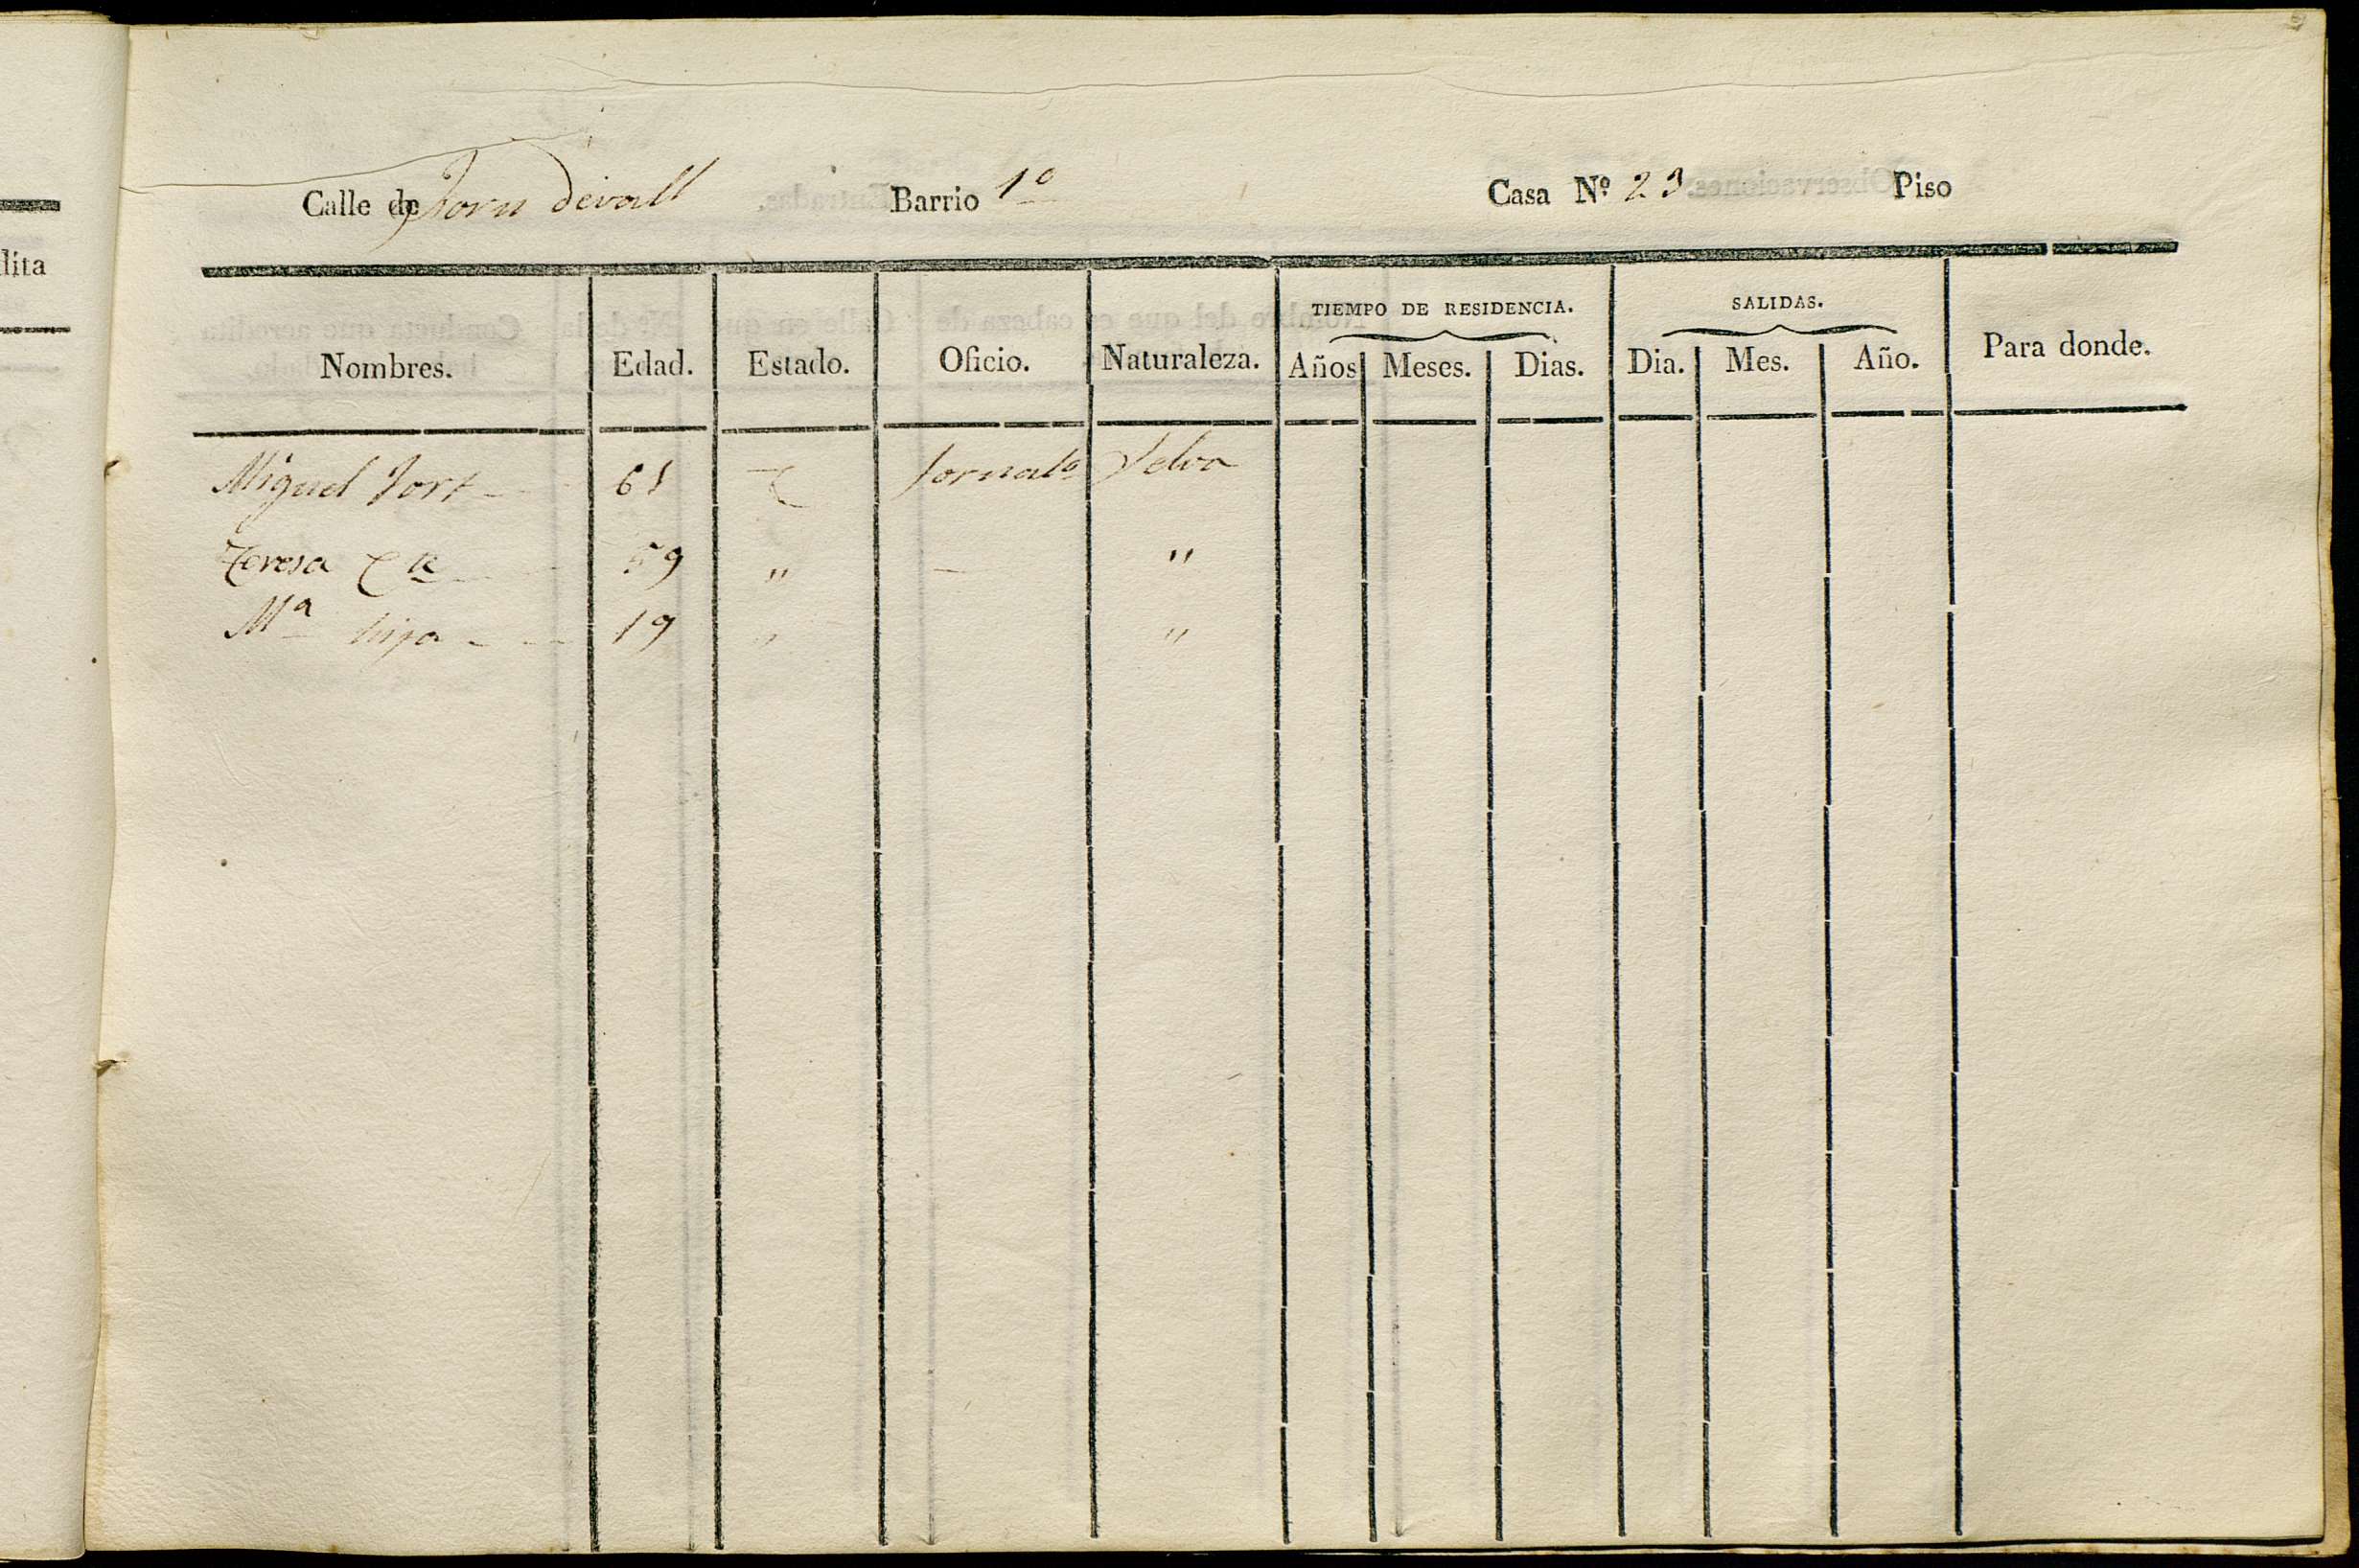 dita
Calle de Forn devall Barrio 1º Casa Nº 23 Piso
TIEMPO DE RESIDENCIA. SALIDAS.
Nombres. Edad. Estado. Oficio. Naturaleza. Años Meses. Dias. Dia. Mes. Año. Para donde.
Miguel Fort 61 C Jornalº Selva
Teresa C 59 " - "
Mª hija 19 " "